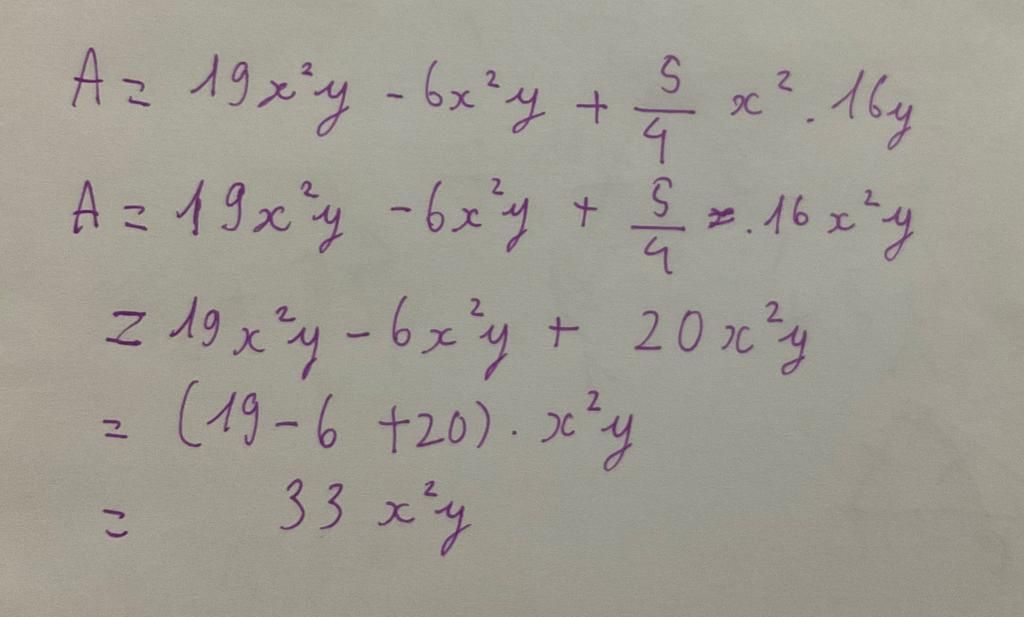 A = 19x²y - 6x²y + 5/4 x² . 16y
A = 19x²y - 6x²y + 5/4 . 16x²y
= 19x²y - 6x²y + 20x²y
= (19 - 6 + 20) . x²y
= 33 x²y